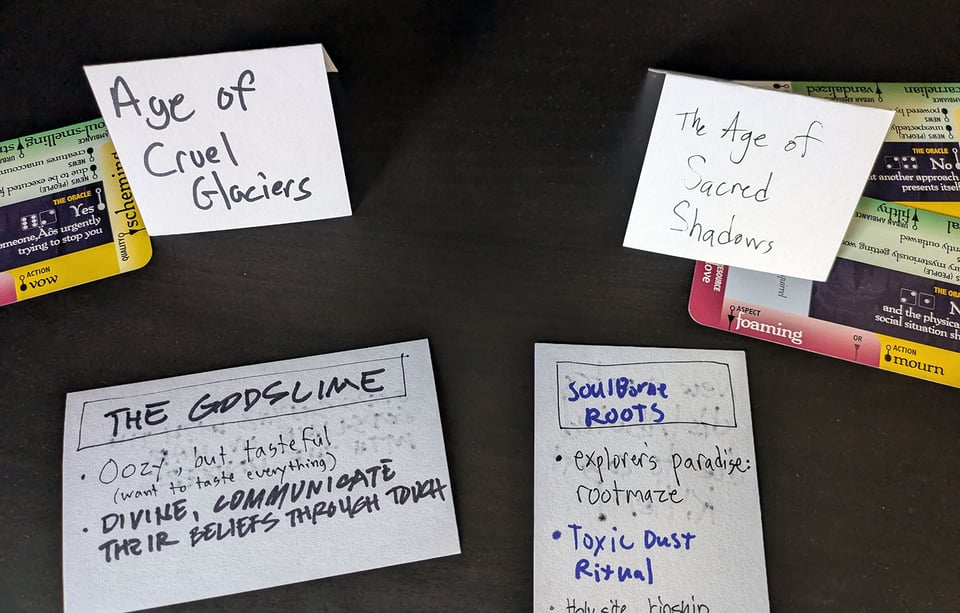 Age of
Cruel
Glaciers
The Age of
Sacred
Shadows
THE GODSLIME
• Oozy, but tasteful
(want to taste everything)
• DIVINE, COMMUNICATE
THEIR BELIEFS THROUGH TOUCH
SoulBorne
ROOTS
• explorer's paradise:
rootmaze
• Toxic Dust
Ritual
• Holy site, kinship
oul-smelling
URBAN AMBIANCE
creatures unaccoun
NEWS
due to be executed fo
NEWS (PEOPLE)
THE ORACLE
Yes
omeone‚Äôs urgently
trying to stop you
QUALITY
scheming
ACTION
vow
carnelian
vandalized
URBAN AMBIANCE
powered by
NEWS
unexpectedly
NEWS (PEOPLE)
THE ORACLE
No
ut another approach
presents itself
filthy
URBAN AMBIANCE
ntly outlawed
mysteriously getting wo
(PEOPLE)
THE ORA
N
and the physica
social situation sh
RESOURCE
love
squirrel
ASPECT
foaming
OR
ACTION
mourn